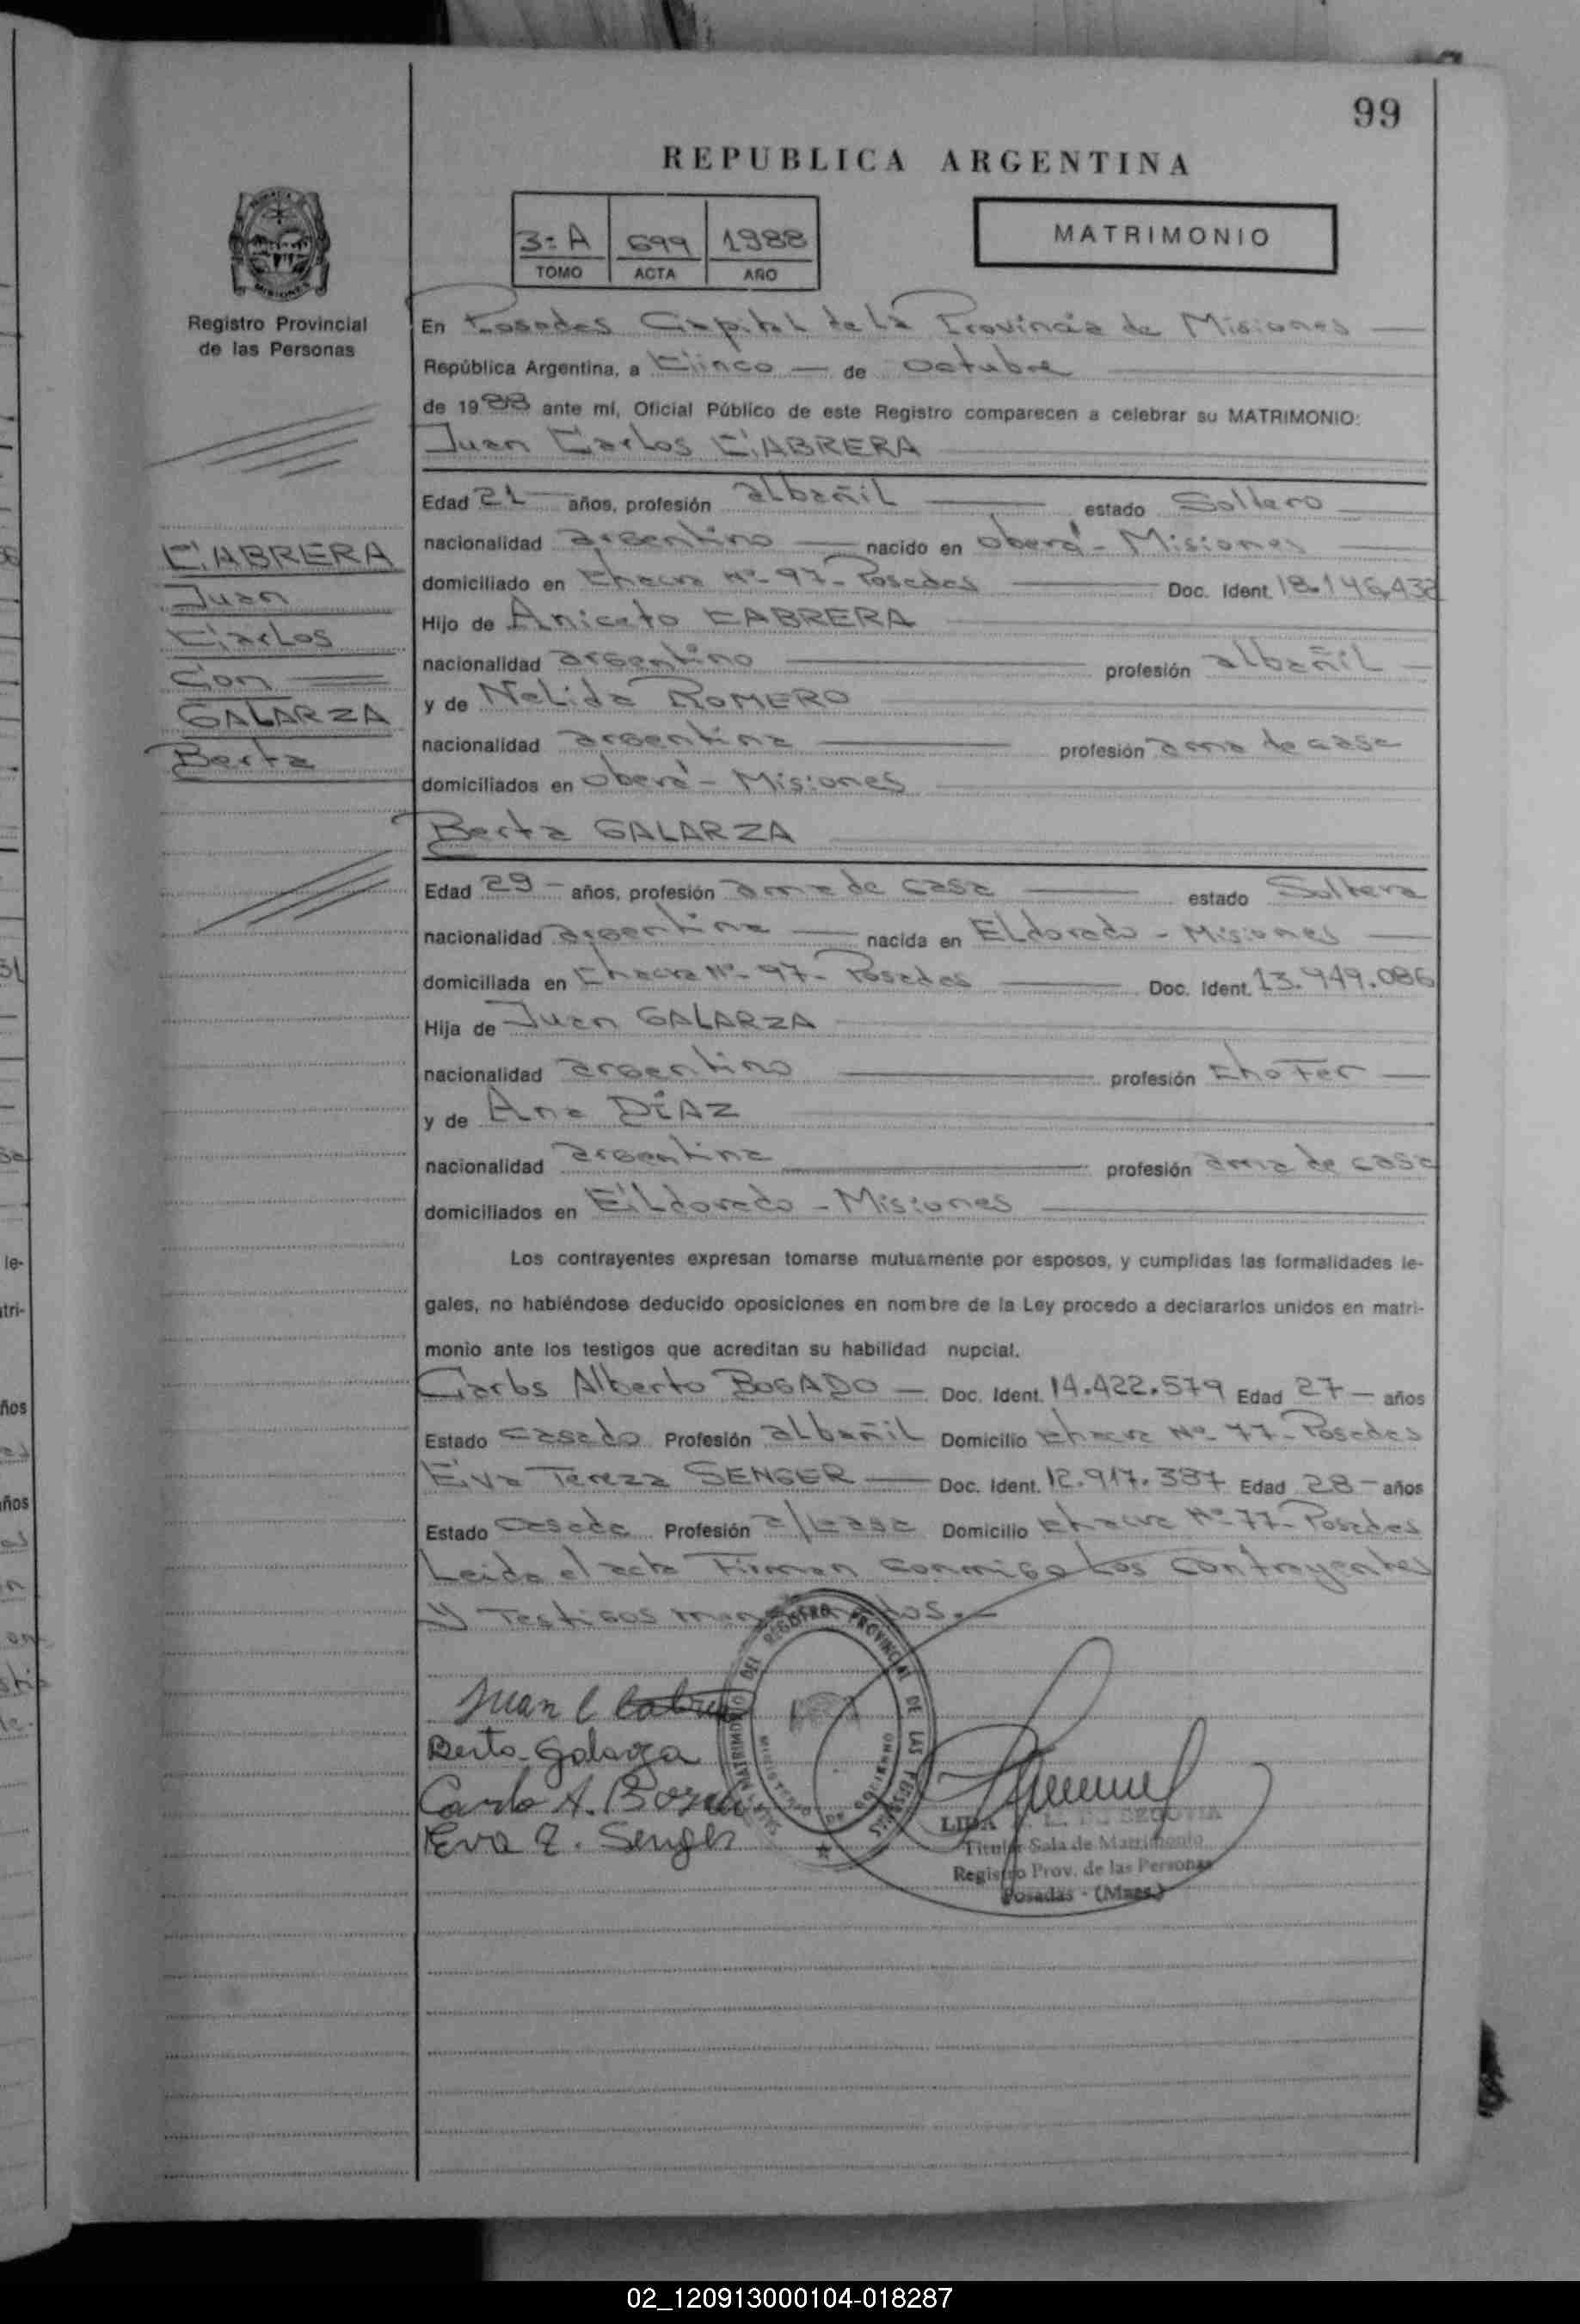 99
REPUBLICA ARGENTINA
3ª A 699 1988
TOMO ACTA AÑO
MATRIMONIO
MISIONES
Registro Provincial
de las Personas
CABRERA
Juan
Carlos
Con
GALARZA
Berta
En Posadas Capital de la Provincia de Misiones
República Argentina, a Cinco de octubre
de 1988 ante mí, Oficial Público de este Registro comparecen a celebrar su MATRIMONIO:
Juan Carlos CABRERA
Edad 21 años, profesión albañil estado Soltero
nacionalidad argentino nacido en Oberá - Misiones
domiciliado en Chacra Nº 97 - Posadas Doc. Ident. 18.146.432
Hijo de Aniceto CABRERA
nacionalidad argentino profesión albañil
y de Nelida ROMERO
nacionalidad argentina profesión ama de casa
domiciliados en Oberá - Misiones
Berta GALARZA
Edad 29 - años, profesión ama de casa estado Soltera
nacionalidad argentina nacida en Eldorado - Misiones
domiciliada en Chacra Nº 97 - Posadas Doc. Ident. 13.949.086
Hija de Juan GALARZA
nacionalidad argentino profesión Chofer
y de Ana DÍAZ
nacionalidad argentina profesión ama de casa
domiciliados en Eldorado - Misiones
Los contrayentes expresan tomarse mutuamente por esposos, y cumplidas las formalidades le-
gales, no habiéndose deducido oposiciones en nombre de la Ley procedo a declararlos unidos en matri-
monio ante los testigos que acreditan su habilidad nupcial.
Carlos Alberto BOSADO Doc. Ident. 14.422.579 Edad 27 años
Estado casado Profesión albañil Domicilio Chacra Nº 77 - Posadas
Eva Tereza SENGER Doc. Ident. 12.917.387 Edad 28 - años
Estado casada Profesión a/casa Domicilio Chacra Nº 77 - Posadas
Leida el acta Firman conmigo los contrayentes
y Testigos
Juan C Cabrera
Berta Galarza
Carlo A.
Eva T. Senger
REGISTRO PROVINCIAL DE LAS PERSONAS
LIDA DE SEGOVIA
Titular Sala de Matrimonio
Registro Prov. de las Personas
Posadas - (Mnes.)
02_120913000104-018287